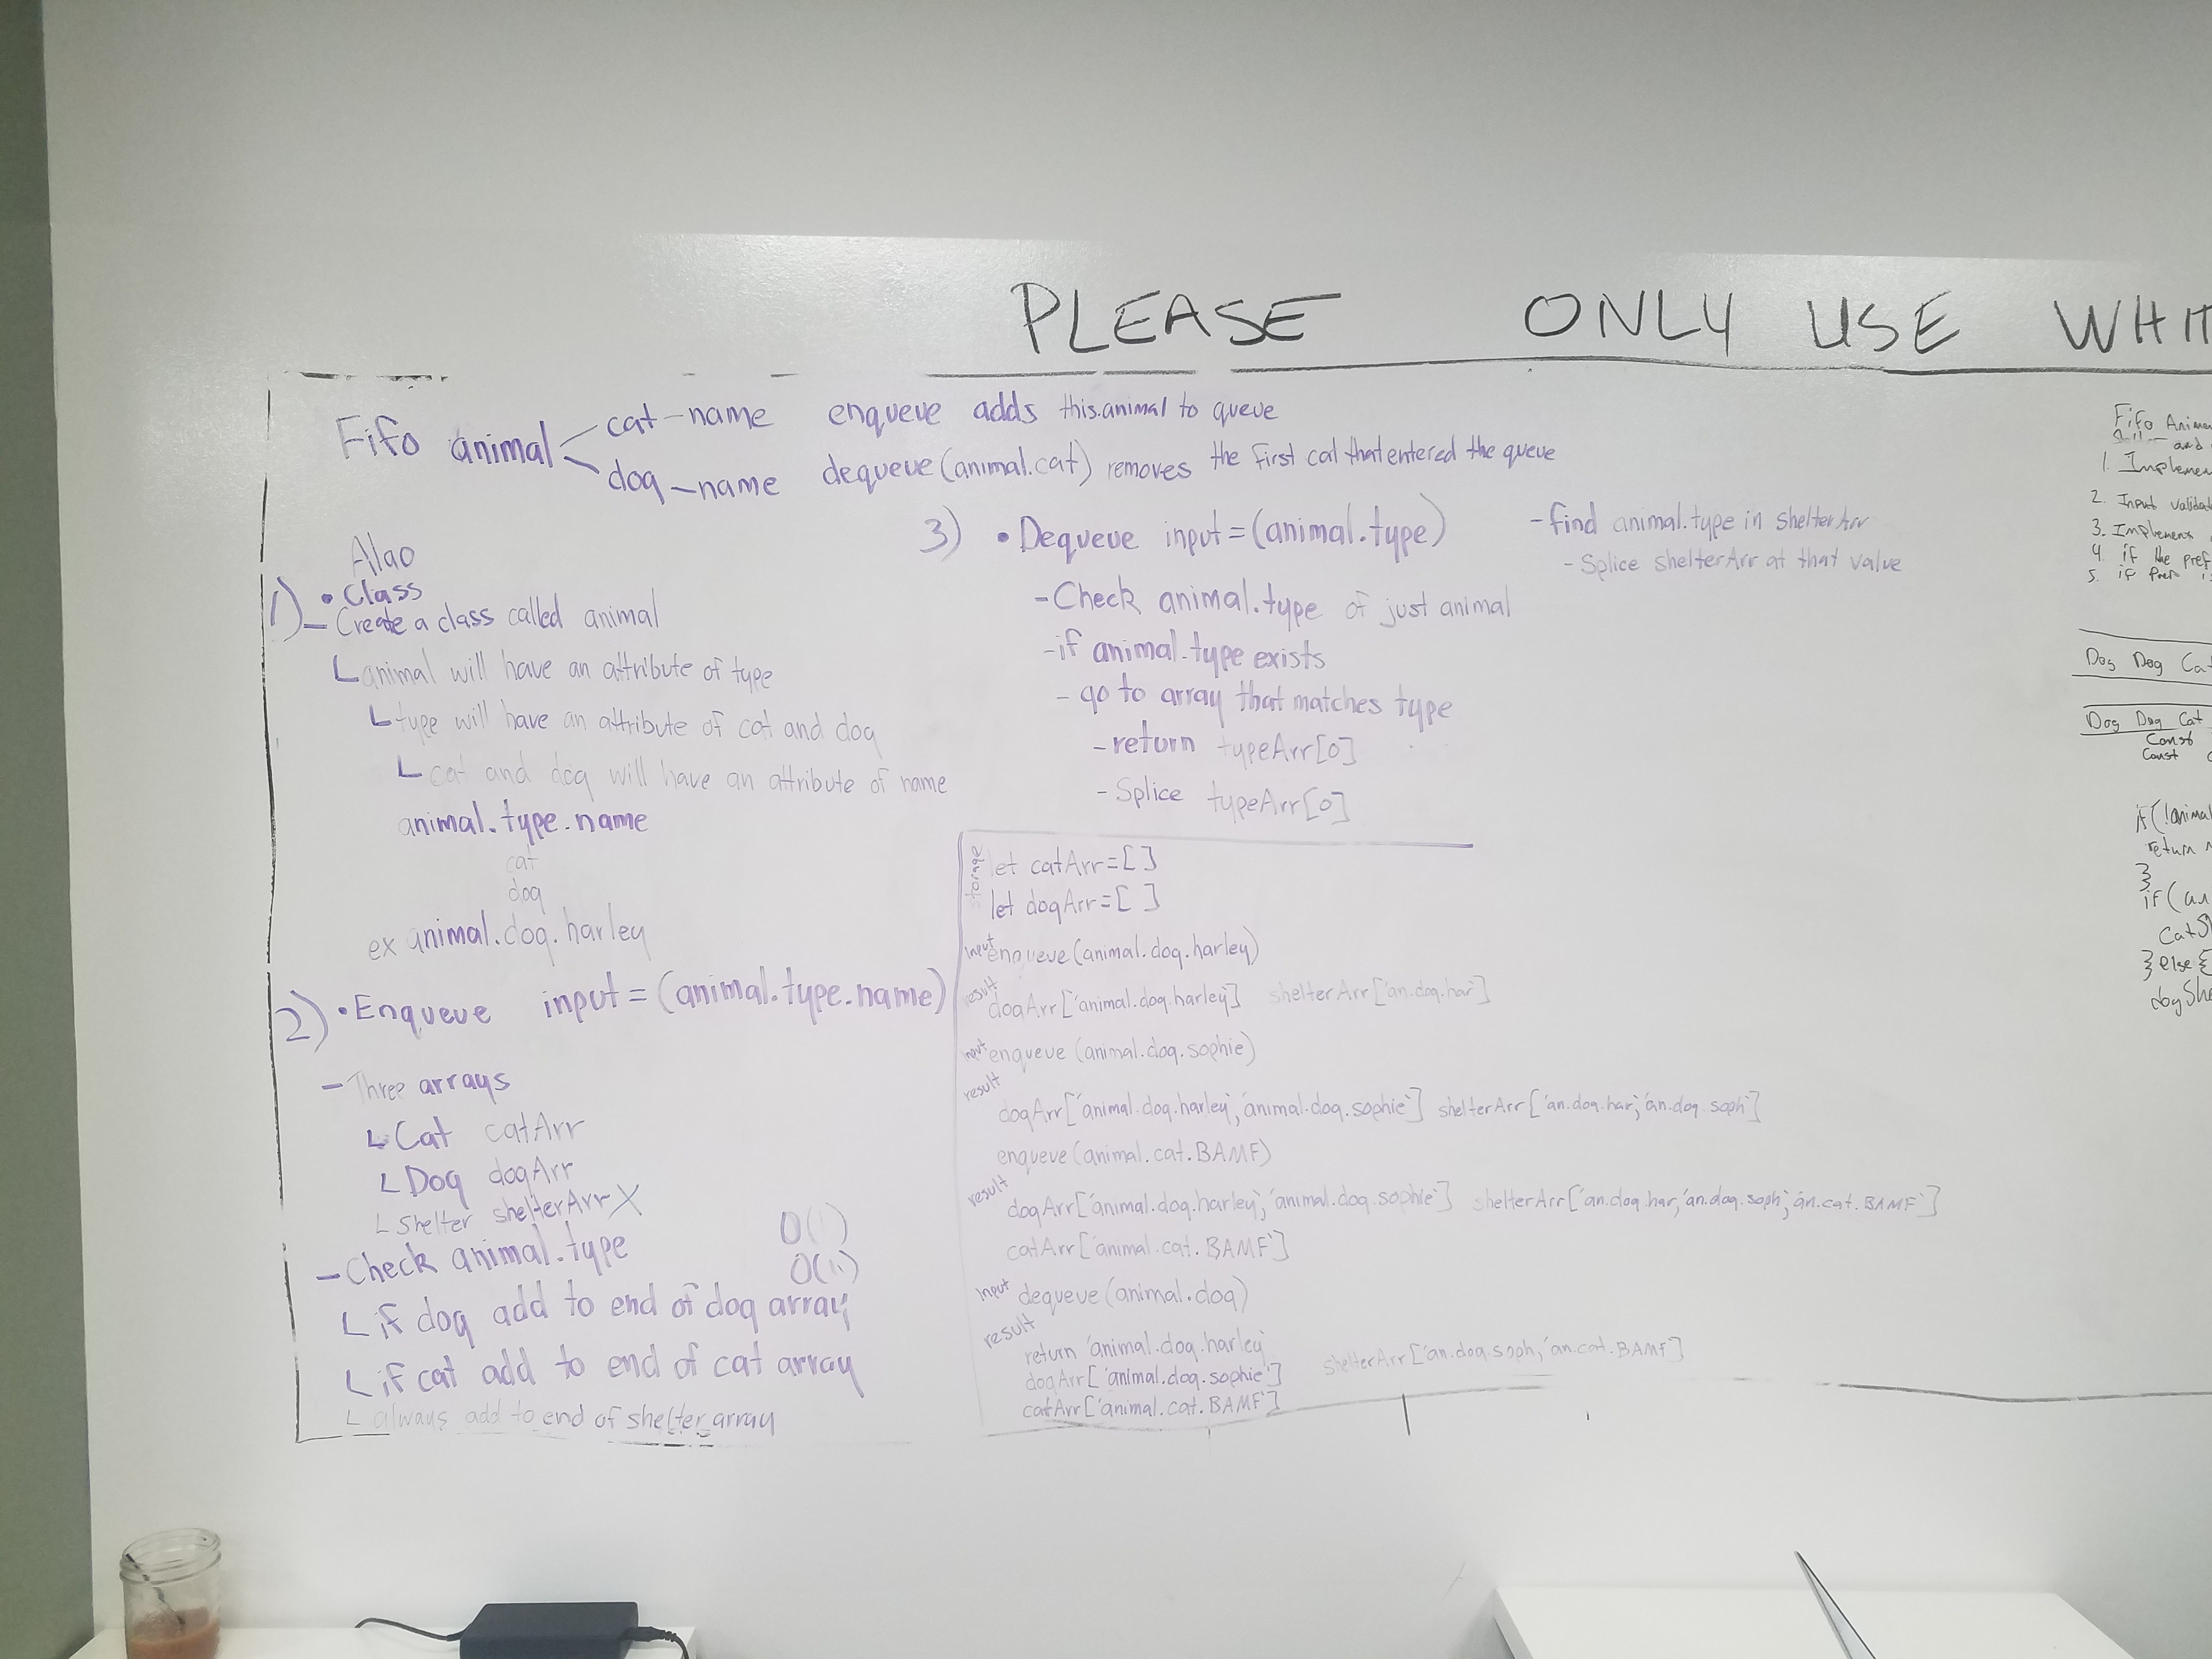 PLEASE ONLY USE WHIT
Fifo animal
cat-name
dog-name
enqueue adds this.animal to queue
dequeue(animal.cat) removes the first cat that entered the queue
Algo
1) • Class
- Create a class called animal
animal will have an attribute of type
type will have an attribute of cat and dog
cat and dog will have an attribute of name
animal.type.name
cat
dog
ex animal.dog.harley
2) • Enqueue input = (animal.type.name)
- Three arrays
Cat catArr
Dog dogArr
Shelter shelterArr X
O(1)
- Check animal.type
O(n)
if dog add to end of dog array
if cat add to end of cat array
always add to end of shelter array
3) • Dequeue input = (animal.type)
- Check animal.type of just animal
- if animal.type exists
- go to array that matches type
- return typeArr[0]
- Splice typeArr[0]
- find animal.type in shelterArr
- Splice shelterArr at that value
storage
let catArr = [ ]
let dogArr = [ ]
Input enqueue(animal.dog.harley)
result dogArr['animal.dog.harley'] shelterArr['an.dog.har']
Input enqueue(animal.dog.sophie)
result
dogArr['animal.dog.harley', 'animal.dog.sophie'] shelterArr['an.dog.har', 'an.dog.soph']
enqueue(animal.cat.BAMF)
result
dogArr['animal.dog.harley', 'animal.dog.sophie'] shelterArr['an.dog.har, 'an.dog.soph', 'an.cat.BAMF']
catArr['animal.cat.BAMF']
Input dequeue(animal.dog)
result
return 'animal.dog.harley'
dogArr['animal.dog.sophie'] shelterArr['an.dog.soph', 'an.cat.BAMF']
catArr['animal.cat.BAMF']
Fifo Anima
and
1. Implemen
2. Input validat
3. Implement
4. if the pref
5. if Pref
Dog Dog Cat
Dog Dog Cat
Const
Const
if(!animal
return n
}
if(an
CatSh
} else {
dogShe